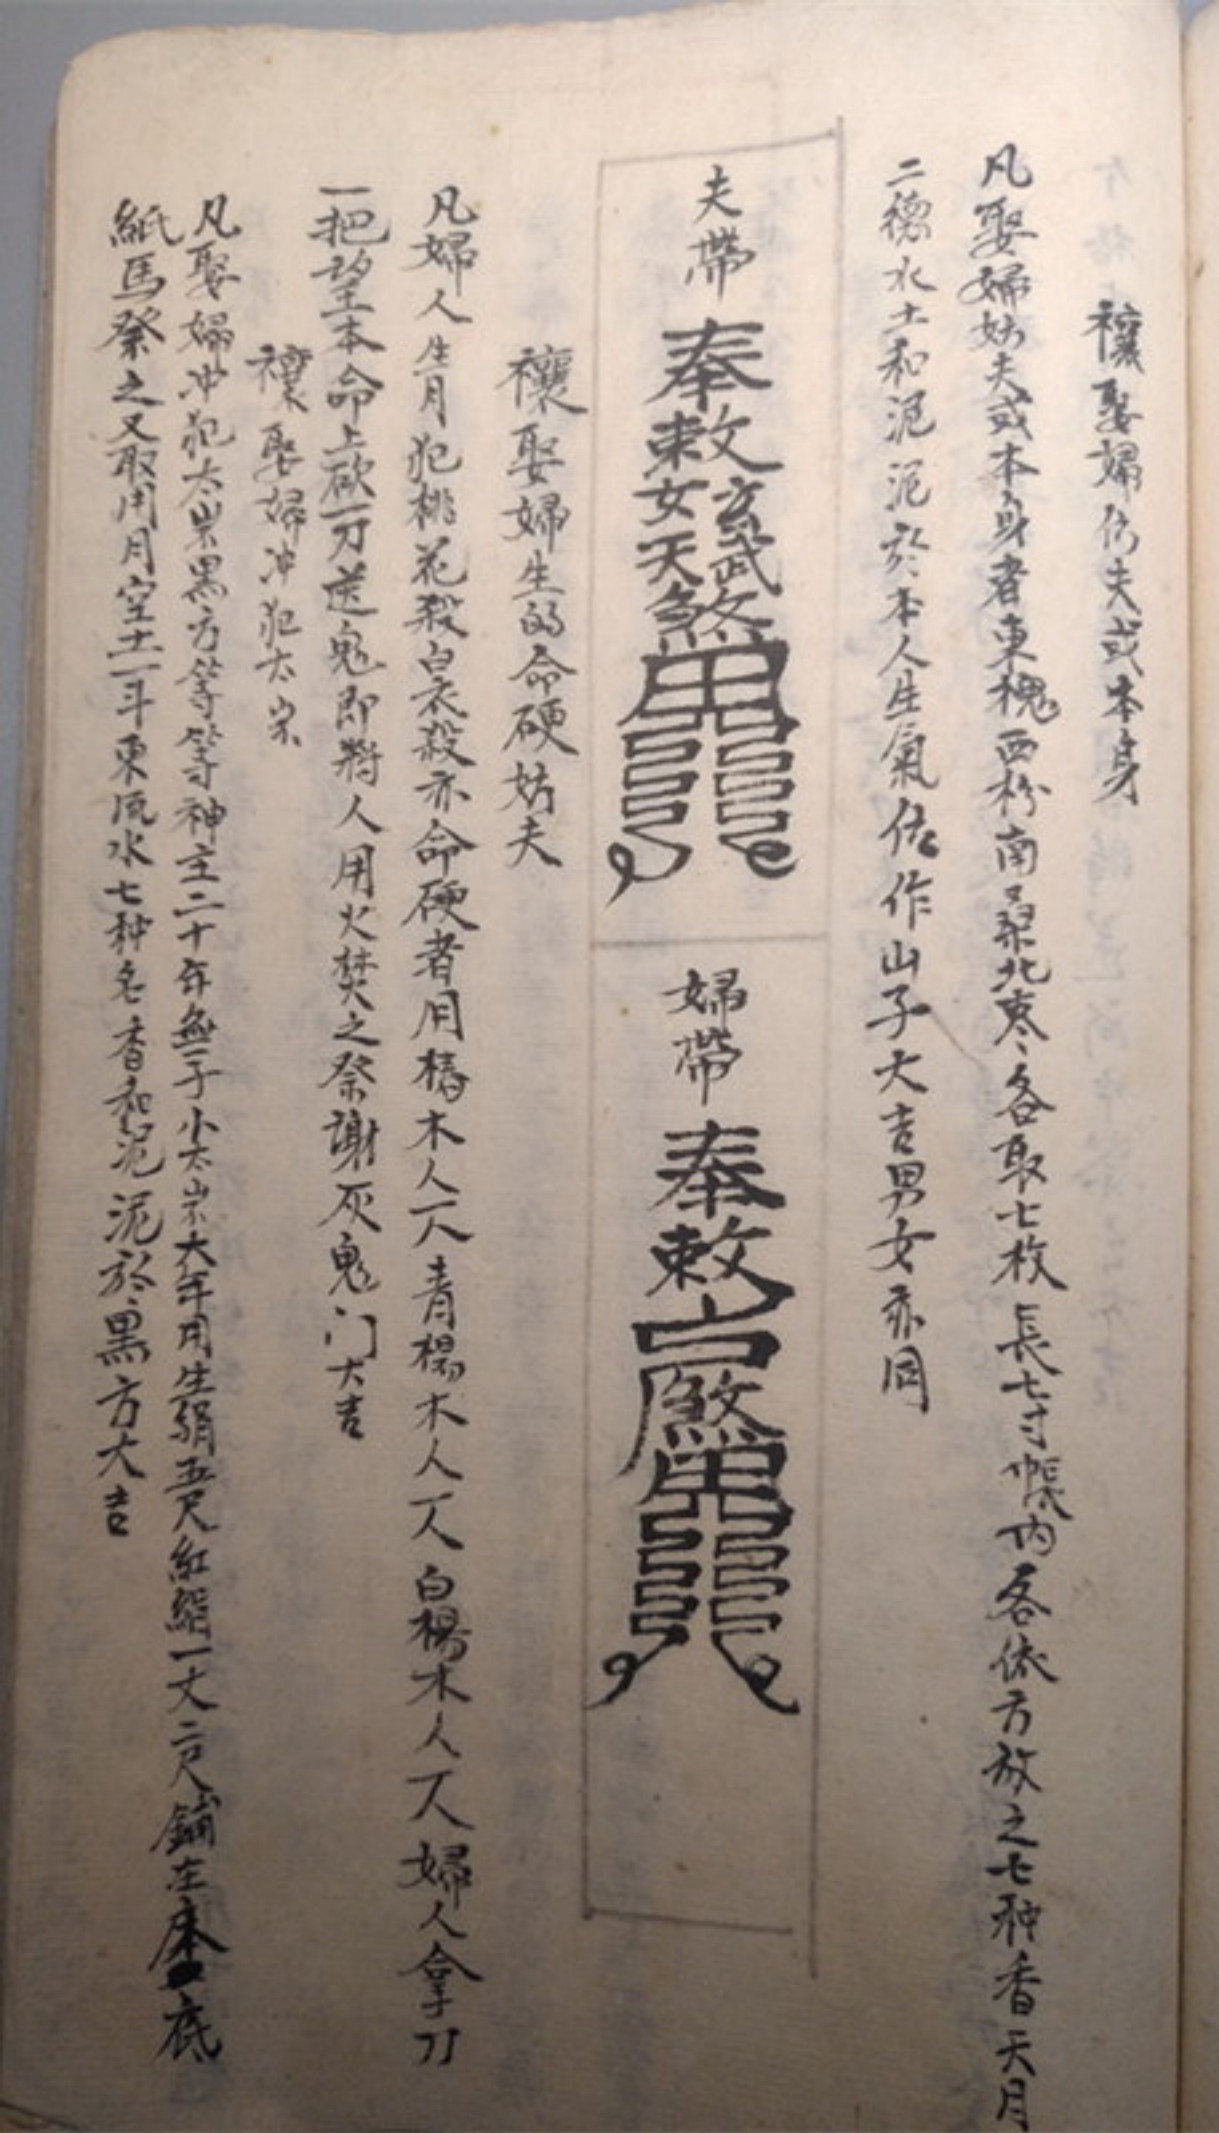 禳娶婦伤夫或本身
凡娶婦妨夫或本身者東槐西枌南桑北枣各取七枚長七寸帳内各依方放之七种香天月
二德水土和泥泥於本人生氣位作山子大吉男女亦同
夫帶
奉敕玄武女天煞
婦帶
奉敕煞
禳娶婦生的命硬妨夫
凡婦人生月犯桃花殺白衣殺亦命硬者用椿木人一人青楊木人一人白楊木人一人婦人拿刀
一把望本命上砍一刀送鬼即將人用火焚之祭謝灰鬼门大吉
禳娶婦冲犯太
凡娶婦冲犯太黑方等等神主二十年無子小太大年用生絹五尺紅絹一丈二尺鋪在床底
紙馬祭之又取用月空土一斗東流水七种名香和泥泥於黑方大吉